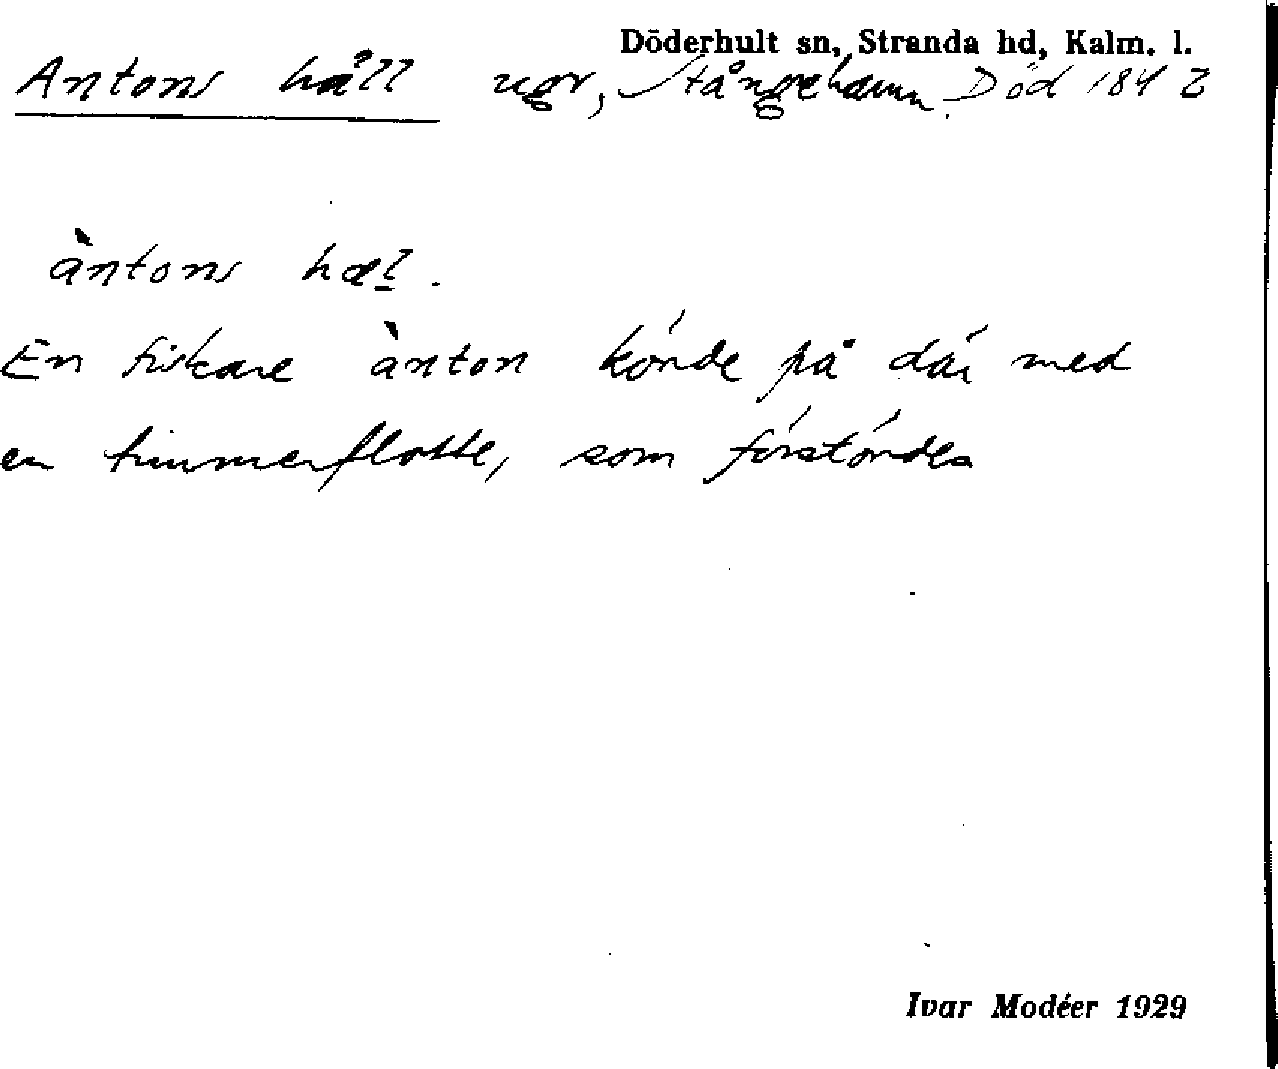 Döderhult sn, Stranda hd, Kalm. l.
Antons håll ugr, Stångehamn. Död 1842
àntons hæl.
En fiskare ànton körde på där med
en timmerflotte, som förstördes
Ivar Modéer 1929